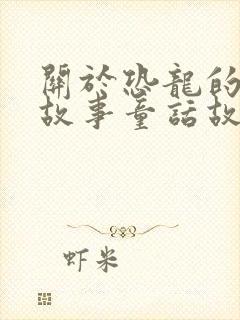 關於恐龍的
故事童話故
虾米